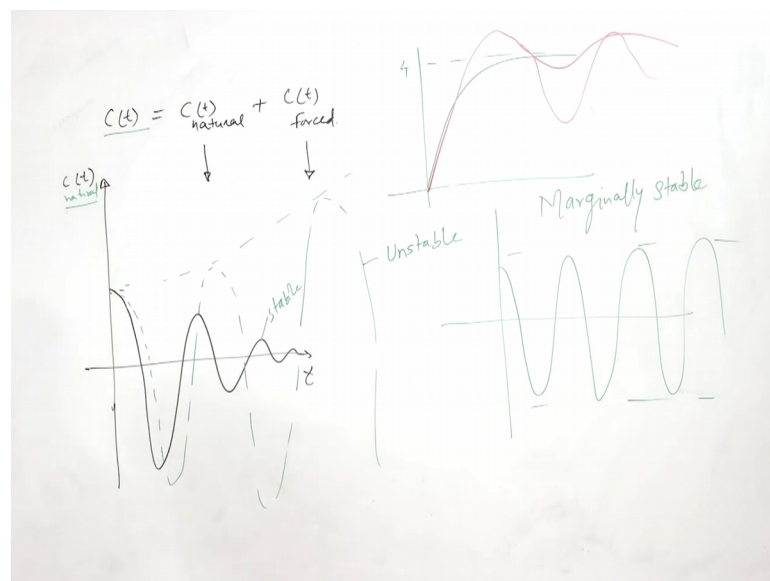 C(t) = C(t) natural + C(t) forced.
C(t) natural
t
stable
Unstable
4
Marginally stable